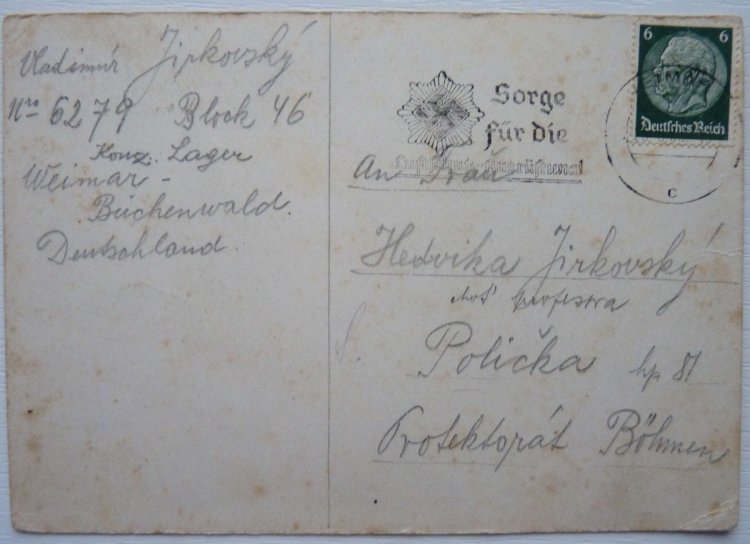 Vladimír Jirkovský
Nro 6279 Block 46
Konz. Lager
Weimar -
Buchenwald.
Deutschland.
6 6
Deutsches Reich
Sorge
für die
Luftschutz-Ausrüstung!
c
An Frau
Hedvika Jirkovský
choť profesora
Polička hp 81
Protektorát Böhmen